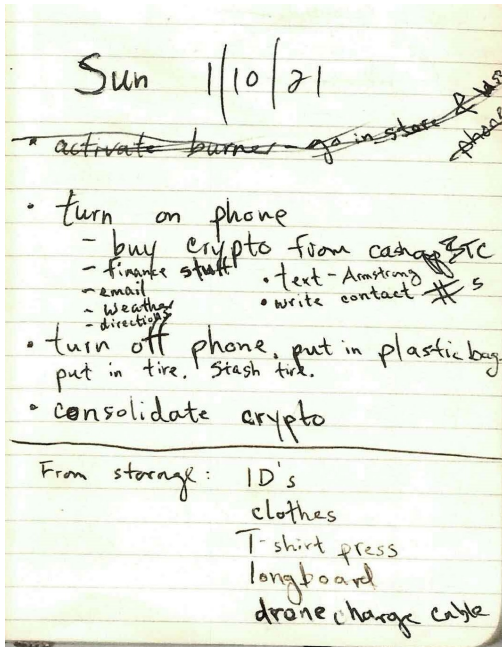 Sun 1/10/21
• activate burner - go in store & las
phone
• turn on phone
- buy crypto from cashapp BTC
- finance stuff • text - Armstrong
- email • write contact #s
- weather
- directions
• turn off phone, put in plastic bag
put in tire. Stash tire.
• consolidate crypto
From storage: ID's
clothes
T-shirt press
longboard
drone charge cable